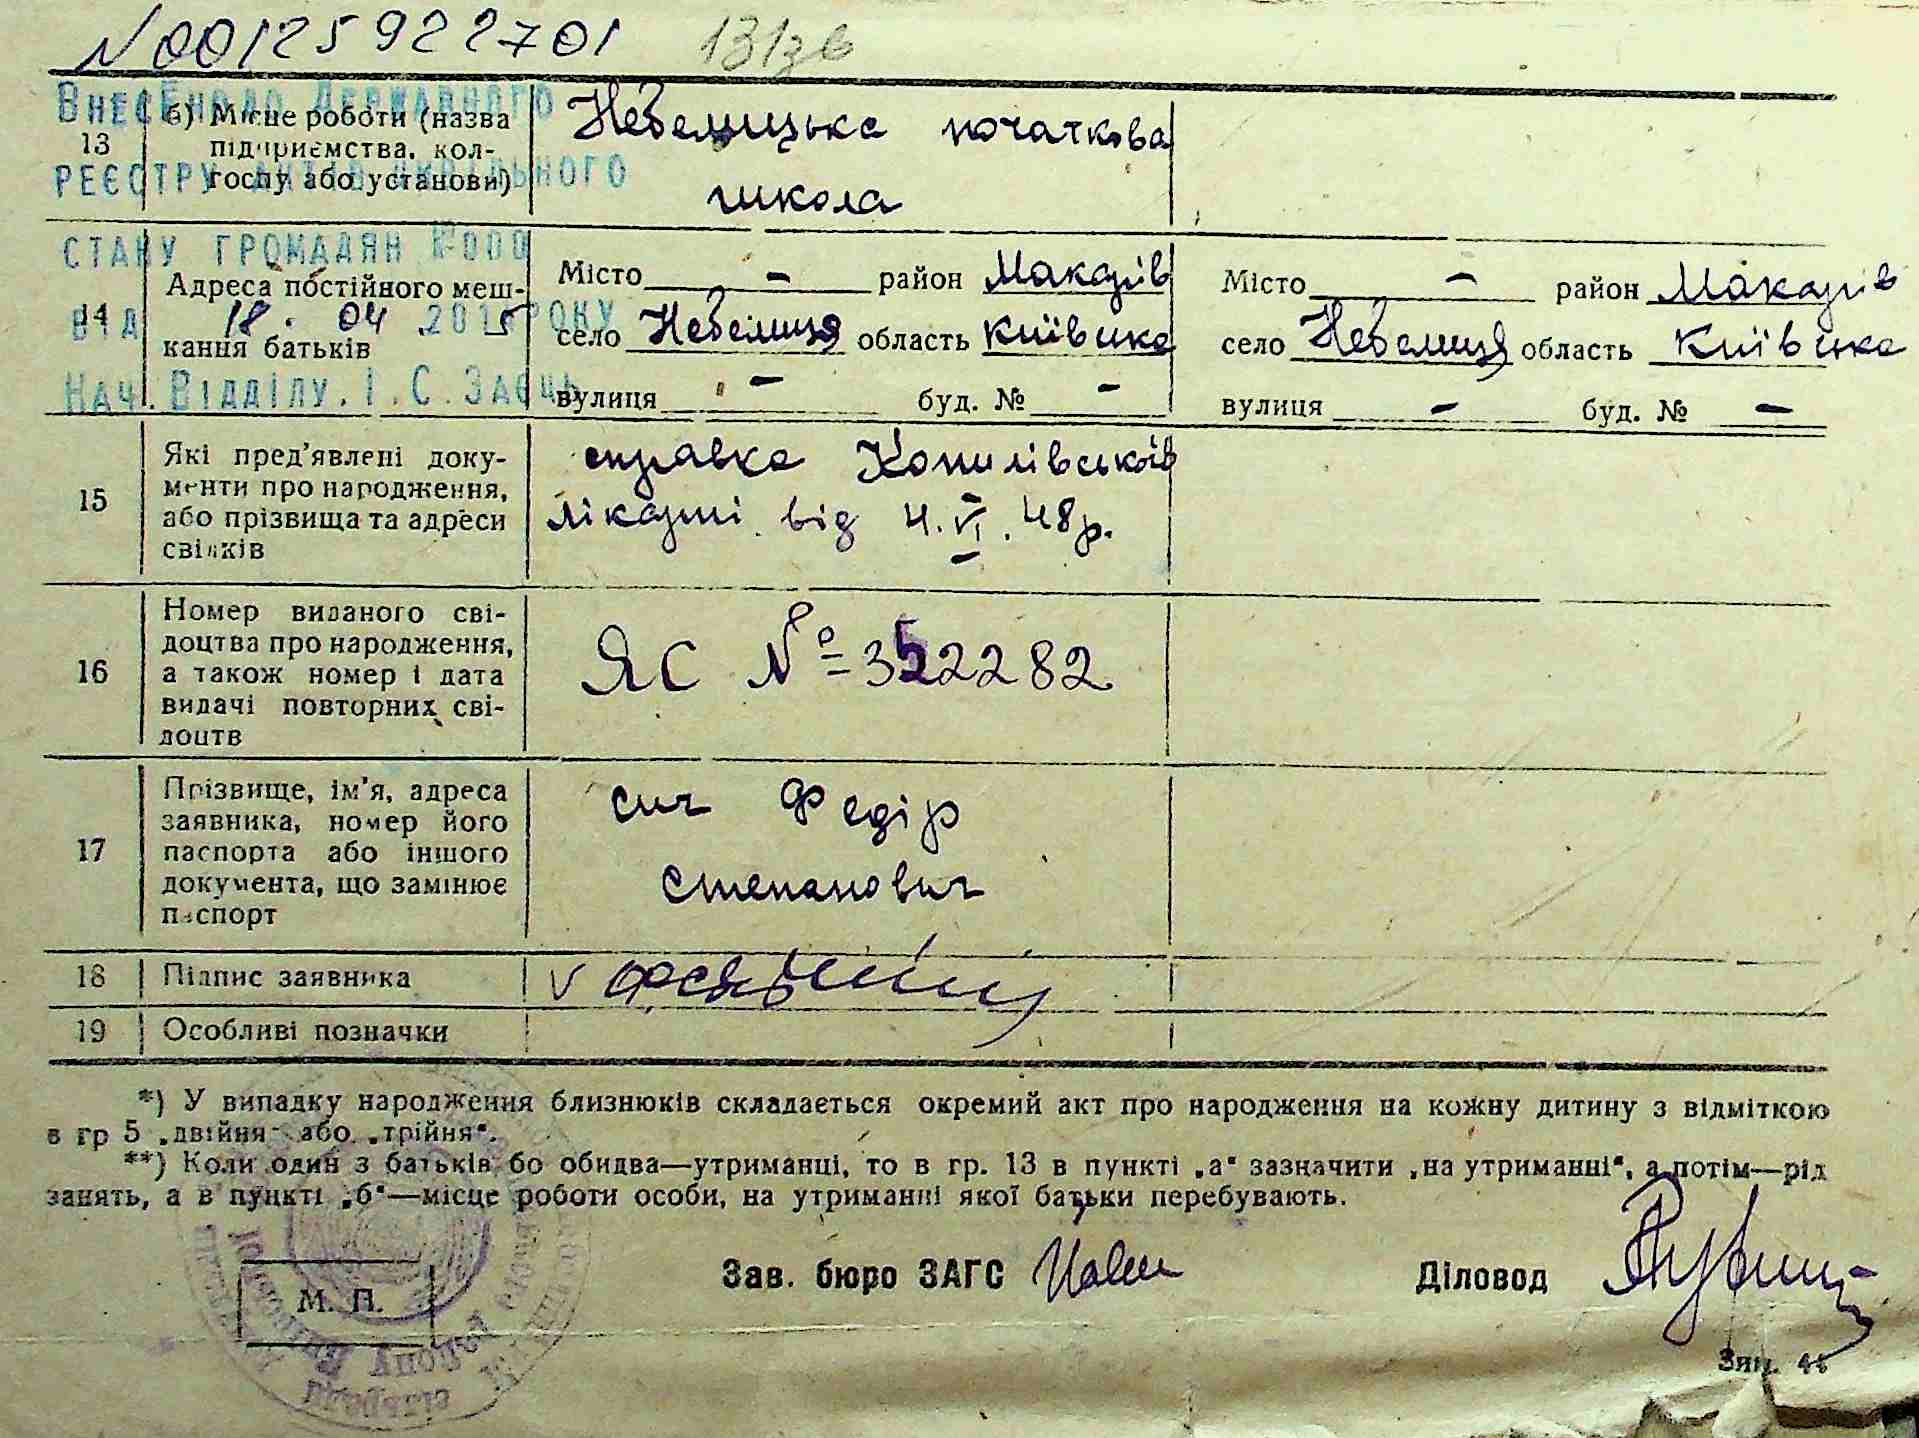 N00125922701 131зв
ВНЕСЕНО ДО ДЕРЖАВНОГО
РЕЄСТРУ АКТІВ ЦИВІЛЬНОГО
СТАНУ ГРОМАДЯН №000
ВІД 18. 04 .2015 РОКУ
НАЧ. ВІДДІЛУ. І.С.ЗАЄЦЬ
13 б) Місце роботи (назва
підприємства, кол-
госпу або установи)
Небелицька початкова
школа
14 Адреса постійного меш-
кання батьків
Місто – район Макарів
село Небелиця область Київська
вулиця – буд. № –
Місто – район Макарів
село Небелиця область Київська
вулиця – буд. № –
15 Які пред'явлені доку-
менти про народження,
або прізвища та адреси
свідків
справка Копилівської
лікарні від 4.VI.48р.
16 Номер виданого сві-
доцтва про народження,
а також номер і дата
видачі повторних сві-
доцтв
ЯС № 352282
17 Прізвище, ім'я, адреса
заявника, номер його
паспорта або іншого
документа, що замінює
паспорт
Сич Федір
Степанович
18 Підпис заявника
19 Особливі позначки
*) У випадку народження близнюків складається окремий акт про народження на кожну дитину з відміткою
в гр 5 „двійня" або „трійня".
**) Коли один з батьків бо обидва—утриманці, то в гр. 13 в пункті „а" зазначити „на утриманні", а потім—рід
занять, а в пункті „б"—місце роботи особи, на утриманні якої батьки перебувають.
Зав. бюро ЗАГС
Діловод
М. П.
Зам. 44